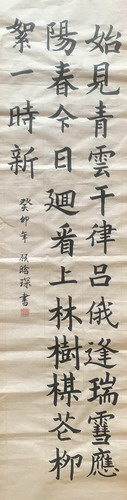 始見青雲干律呂俄逢瑞雪應
陽春今日迴看上林樹楳花柳
絮一時新
癸卯年 琛書